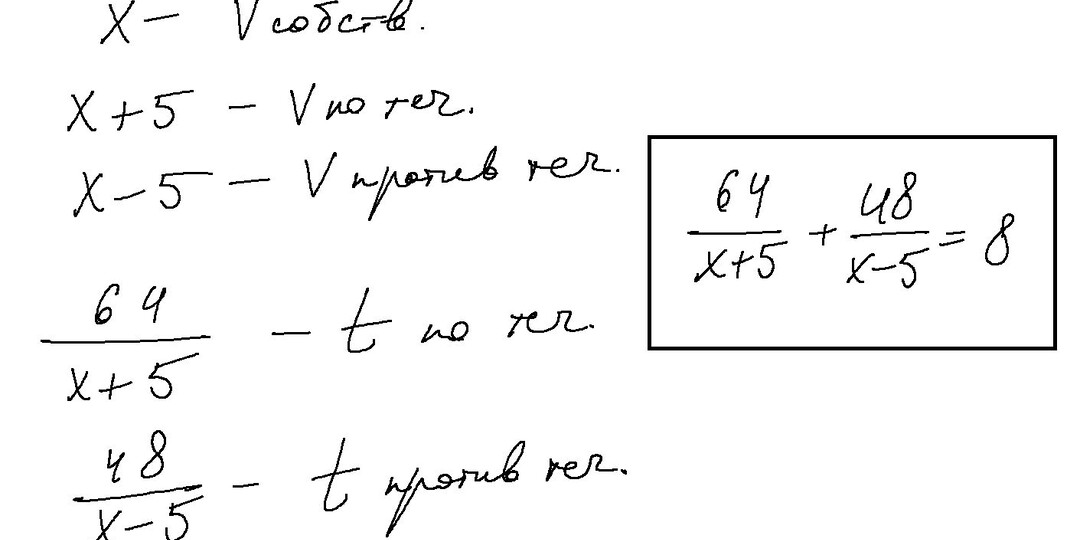 x — V собств.
x + 5 — V по теч.
x — 5 — V против теч.
64/(x+5) — t по теч.
48/(x-5) — t против теч.
64/(x+5) + 48/(x-5) = 8